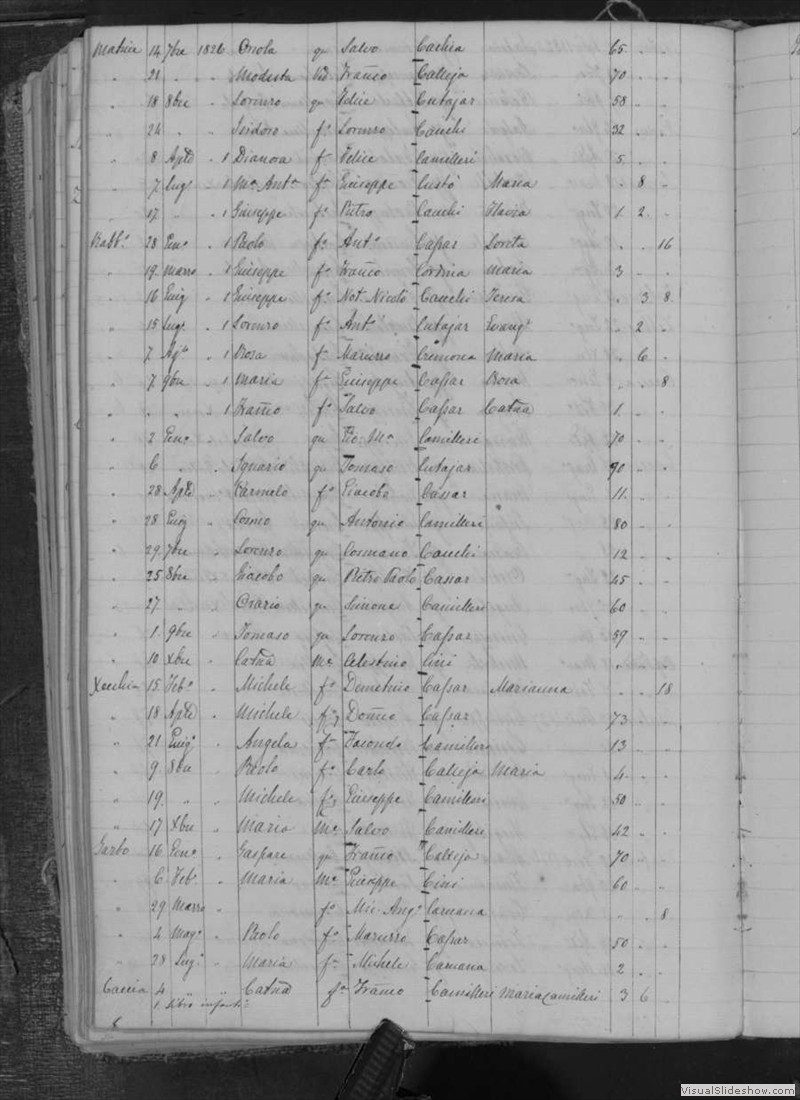 Matrice 14 7bre 1826 Orsola qu Salvo Cachia 65 " "
" 21 " " Modesta Vid Franco Calleja 70 " "
" 18 8bre " Lorenzo qu Felice Cutajar 58 " "
" 24 " " Isidoro fo Lorenzo Cauchi 32 " "
" 8 Agto " 1 Dianora fa Felice Camilleri 5 " "
" 7 Lugo " 1 Ma Anta fa Giuseppe Custó Maria " 8 "
" 17 " " 1 Giuseppe fo Pietro Cauchi Flavia 1 2 "
Rabbo 28 Geno " 1 Paolo fo Anto Caſsar Loreta " " 16
" 19 Marzo " 1 Giuseppe fo Franco Cordina Maria 3 " "
" 16 Giug " 1 Giuseppe fo Not. Nicoló Cauchi Teresa " 3 8
" 15 Lugo " 1 Lorenzo fo Anto Cutajar Evango " 2 "
" 7 Agto " 1 Rosa fa Marurzo Cremona Maria " 6 "
" 7 9bre " 1 Maria fa Giuseppe Caſsar Rosa " " 8
" " " " 1 Franco fo Salvo Caſsar Catna 1 " "
" 2 Geno " Salvo qu Gio: Ma Camilleri 70 " "
" 6 " " Ignazio qu Tomaso Cutajar 90 " "
" 28 Agto " Carmelo fo Giacobo Cassar 11 " "
" 28 Giug " Cosmo qu Antonio Camilleri 80 " "
" 29 7bre " Lorenzo qu Cosmano Cauchi 12 " "
" 25 8bre " Giacobo qu Pietro Paolo Cassar 45 " "
" 27 " " Orazio qu Simone Camilleri 60 " "
" 1 9bre " Tomaso qu Lorenzo Caſsar 59 " "
" 10 Xbre " Catna Me Celestino Cini " " "
Xeuchia 15 Febo " Michele fo Demetrio Caſsar Marianna " " 18
" 18 Agto " Michele Domco Caſsar 73 " "
" 21 Giugo " Angela fa Facondo Camilleri 13 " "
" 9 8bre " Paolo fo Carlo Calleja Maria 4 " "
" 19 " " Michele Giuseppe Camilleri 50 " "
" 17 Xbre " Maria Me Salvo Camilleri 42 " "
Garbo 16 Geno " Gaspare qu Franco Calleja 70 " "
" 6 Febo " Maria Me Giuseppe Cini 60 " "
" 29 Marzo " fo Mic-Ango Caruana " " 8
" 4 Mago " Paolo fo Marurzo Caſsar 50 " "
" 28 Lugo " Maria fa Michele Caruana 2 " "
Caccia 4 " " Catna fa Franco Camilleri Maria Camilleri 3 6 "
1 Libro infanti
VisualSlideshow.com